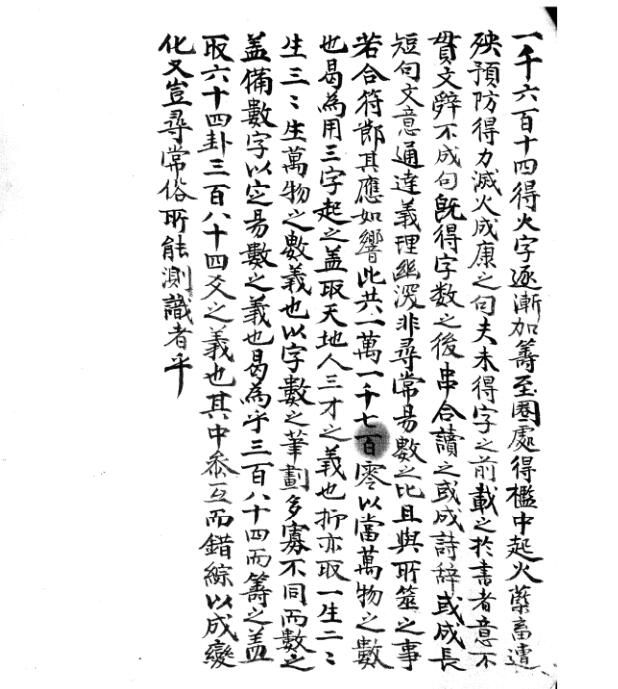 一千六百十四得火字逐漸加籌至圈處得檻中起火蘂畜遭
殃預防得力滅火成康之句夫未得字之前載之於書者意不
貫文辝不成句旣得字数之後串合讀之或成詩辞或成長
短句文意通達義理幽深非尋常易數之比且與所筮之事
若合符節其應如響此共一萬一千七百零以當萬物之數
也曷為用三字起之盖取天地人三才之義也抑亦取一生二〻
生三〻生萬物之數義也以字數之筆劃多寡不同而數之
盖備數字以定易數之義也曷為乎三百八十四而籌之盖
取六十四卦三百八十四爻之義也其中叅互而錯綜以成變
化又豈尋常俗所能測識者乎